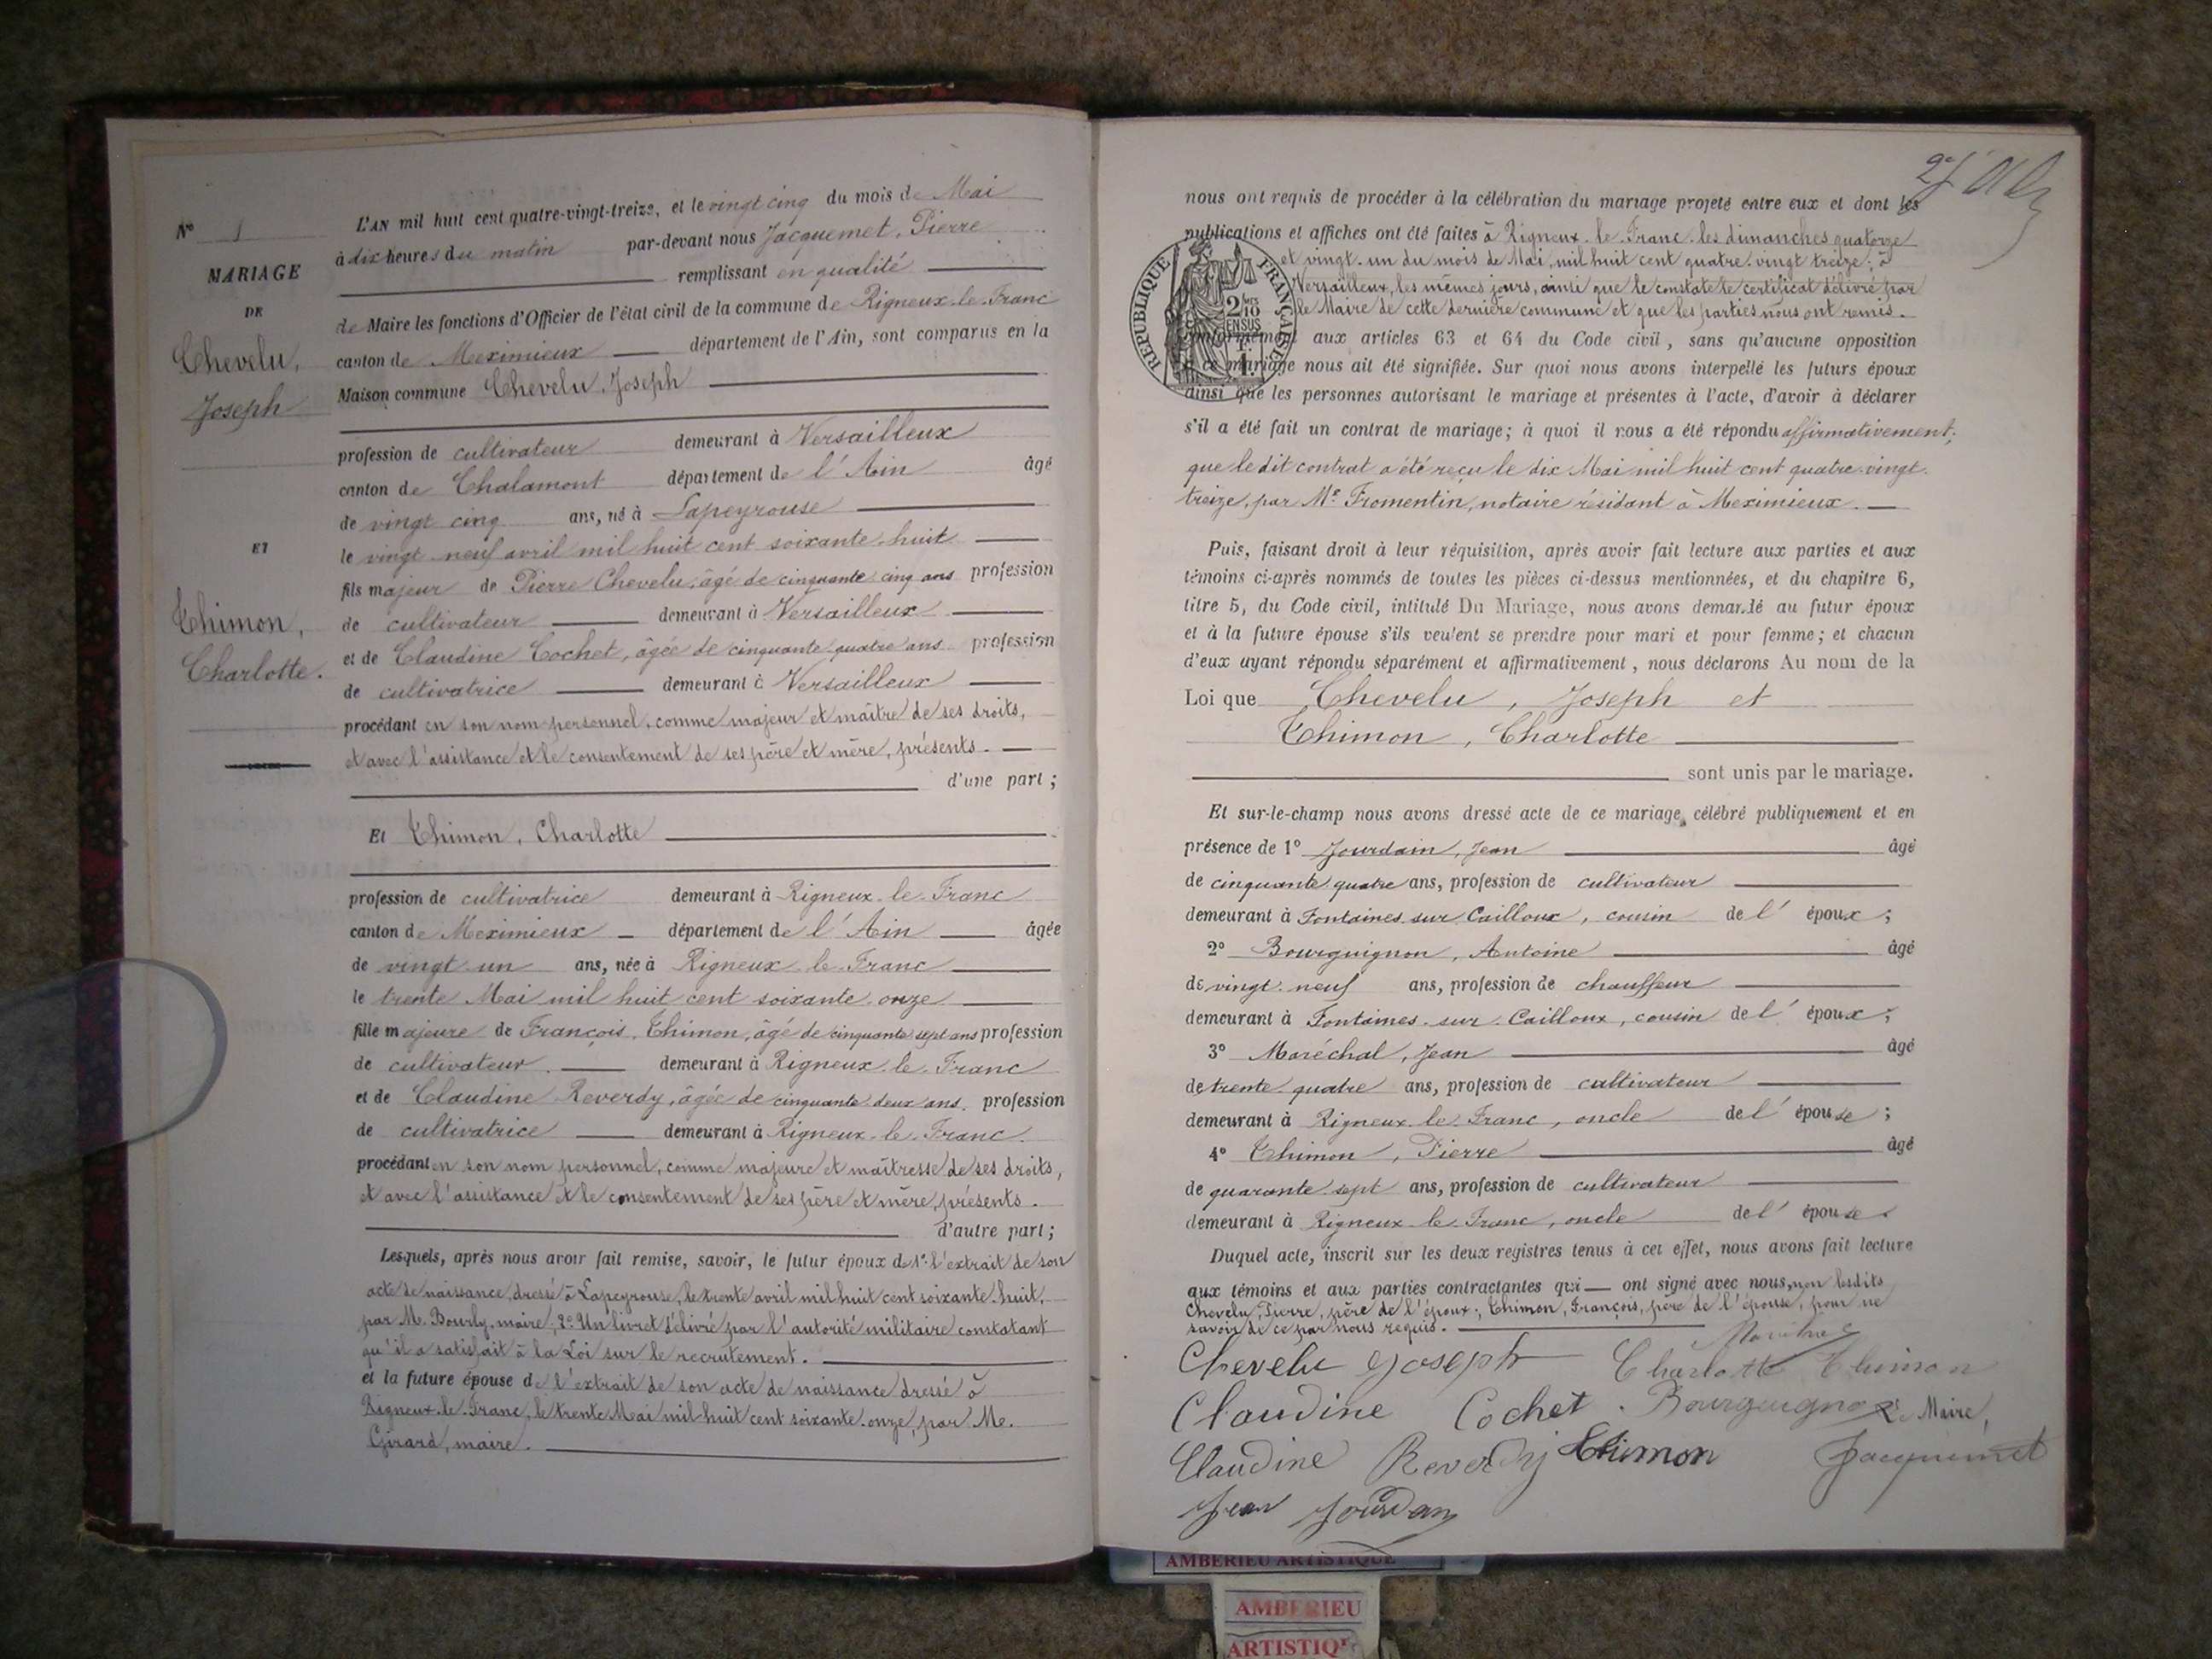 N° 1
MARIAGE
DE
Chevelu,
Joseph
ET
Thimon,
Charlotte.
L'AN mil huit cent quatre-vingt-treize, et le vingt cinq du mois de Mai
à dix heures du matin par-devant nous Jacquemet, Pierre
remplissant en qualité
de Maire les fonctions d'Officier de l'état civil de la commune de Rigneux-le-Franc
canton de Meximieux département de l'Ain, sont comparus en la
Maison commune Chevelu, Joseph
profession de cultivateur demeurant à Versailleux
canton de Chalamont département de l'Ain âgé
de vingt cinq ans, né à Lapeyrouse
le vingt-neuf avril mil huit cent soixante-huit
fils majeur de Pierre Chevelu, âgé de cinquante cinq ans profession
de cultivateur demeurant à Versailleux
et de Claudine Cochet, âgée de cinquante-quatre ans profession
de cultivatrice demeurant à Versailleux
procédant en son nom personnel, comme majeur et maître de ses droits,
et avec l'assistance et le consentement de ses père et mère, présents.
d'une part ;
Et Thimon, Charlotte
profession de cultivatrice demeurant à Rigneux-le-Franc
canton de Meximieux département de l'Ain âgée
de vingt un ans, née à Rigneux-le-Franc
le trente Mai mil huit cent soixante-onze
fille majeure de François Thimon, âgé de cinquante sept ans profession
de cultivateur demeurant à Rigneux-le-Franc
et de Claudine Reverdy, âgée de cinquante-deux ans, profession
de cultivatrice demeurant à Rigneux-le-Franc.
procédant en son nom personnel, comme majeure et maîtresse de ses droits,
et avec l'assistance et le consentement de ses père et mère, présents.
d'autre part ;
Lesquels, après nous avoir fait remise, savoir, le futur époux de 1° l'extrait de son
acte de naissance, dressé à Lapeyrouse, le trente avril mil huit cent soixante-huit,
par M. Bourly, maire ; 2° Un livret délivré par l'autorité militaire constatant
qu'il a satisfait à la Loi sur le recrutement.
et la future épouse de l'extrait de son acte de naissance dressé à
Rigneux-le-Franc, le trente Mai mil huit cent soixante-onze, par Me.
Girard, maire.
nous ont requis de procéder à la célébration du mariage projeté entre eux et dont les
publications et affiches ont été faites à Rigneux-le-Franc les dimanches quatorze
et vingt-un du mois de Mai, mil huit cent quatre-vingt treize ; à
Versailleux, les mêmes jours, ainsi que le constate le certificat délivré par
le Maire de cette dernière commune et que les parties nous ont remis.
conformément aux articles 63 et 64 du Code civil, sans qu'aucune opposition
à ce mariage nous ait été signifiée. Sur quoi nous avons interpellé les futurs époux
ainsi que les personnes autorisant le mariage et présentes à l'acte, d'avoir à déclarer
s'il a été fait un contrat de mariage ; à quoi il nous a été répondu affirmativement,
que le dit contrat a été reçu le dix Mai mil huit cent quatre-vingt-
treize, par Me Fromentin, notaire résidant à Meximieux.
RÉPUBLIQUE FRANÇAISE
2/10 EN SUS
Puis, faisant droit à leur réquisition, après avoir fait lecture aux parties et aux
témoins ci-après nommés de toutes les pièces ci-dessus mentionnées, et du chapitre 6,
titre 5, du Code civil, intitulé Du Mariage, nous avons demandé au futur époux
et à la future épouse s'ils veulent se prendre pour mari et pour femme ; et chacun
d'eux ayant répondu séparément et affirmativement, nous déclarons Au nom de la
Loi que Chevelu, Joseph et
Thimon, Charlotte
sont unis par le mariage.
Et sur-le-champ nous avons dressé acte de ce mariage, célébré publiquement et en
présence de 1° Jourdain, Jean âgé
de cinquante-quatre ans, profession de cultivateur
demeurant à Fontaines-sur-Cailloux, cousin de l'époux ;
2° Bourguignon, Antoine âgé
de vingt-neuf ans, profession de chauffeur
demeurant à Fontaines-sur-Cailloux, cousin de l'époux ;
3° Maréchal, Jean âgé
de trente-quatre ans, profession de cultivateur
demeurant à Rigneux-le-Franc, oncle de l'épouse ;
4° Thimon, Pierre âgé
de quarante-sept ans, profession de cultivateur
demeurant à Rigneux-le-Franc, oncle de l'épouse.
Duquel acte, inscrit sur les deux registres tenus à cet effet, nous avons fait lecture
aux témoins et aux parties contractantes qui ont signé avec nous, non lesdits
Chevelu, Pierre, père de l'époux ; Thimon, François, père de l'épouse, pour ne
savoir de ce par nous requis.
Chevelu Joseph
Charlotte Thimon
Claudine Cochet
Bourguignon
Le Maire,
Claudine Reverdy
Thimon
Jacquemet
Jean Jourdan
AMBERIEU ARTISTIQUE
AMBERIEU
ARTISTIQUE